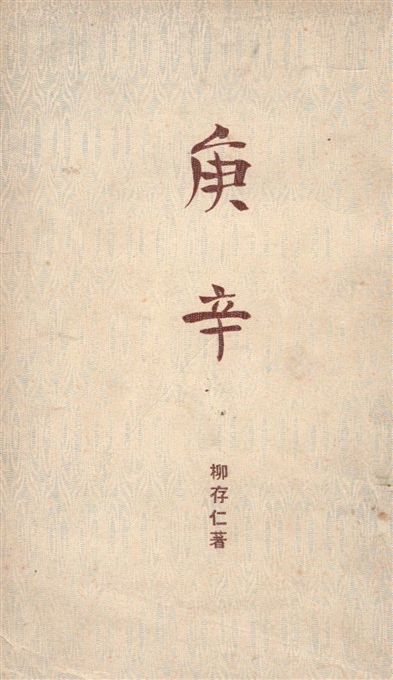 庚辛
柳存仁著